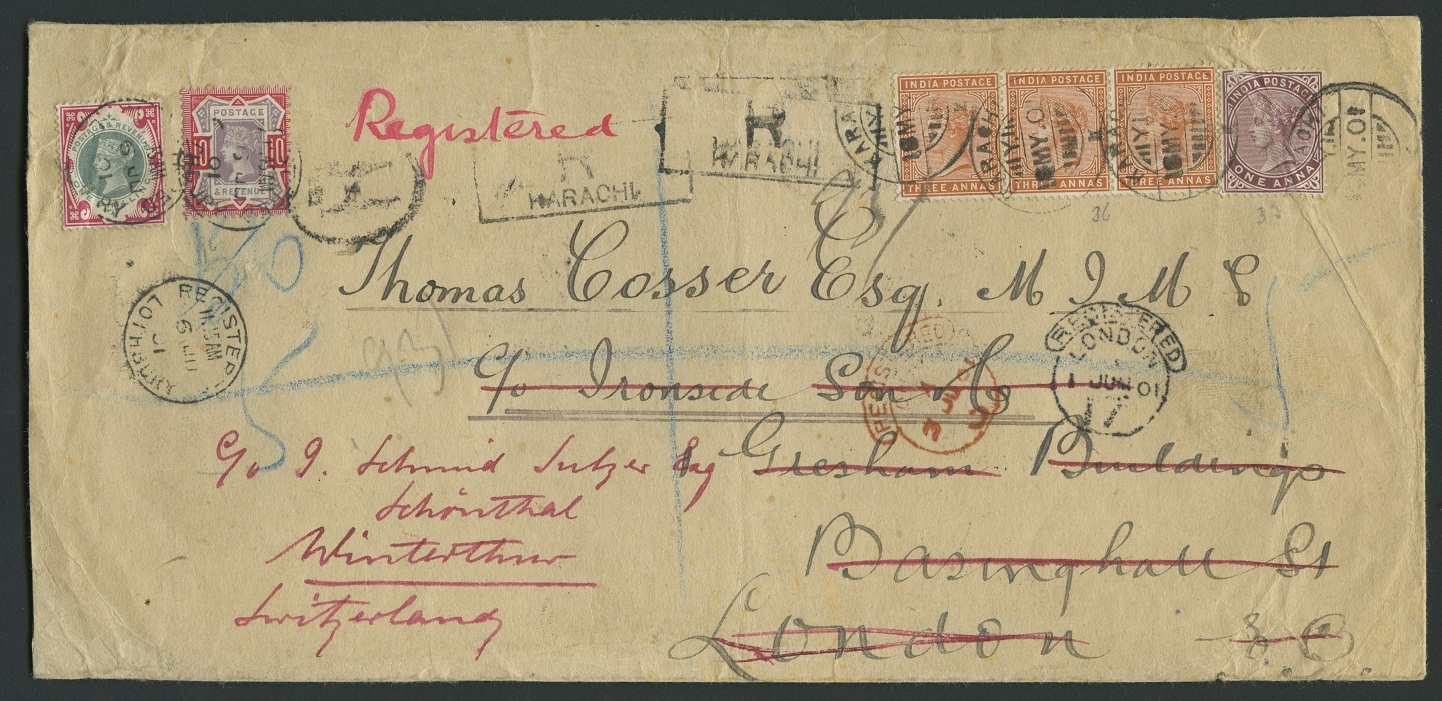 Registered
R
KARACHI
R
KARACHI
POSTAGE & REVENUE
POSTAGE
& REVENUE
INDIA POSTAGE
THREE ANNAS
INDIA POSTAGE
THREE ANNAS
INDIA POSTAGE
THREE ANNAS
INDIA POSTAGE
ONE ANNA
MY.01
MY.01
36
Thomas Cosser Esq. M I M E
c/o Ironside Son & Co
Gresham Buildings
Basinghall St
London E C
c/o J. Schmid Sulzer Esq
Schönthal
Winterthur
Switzerland
REGISTERED
11.15AM
6 JU
01
LOTHBURY
REGISTERED
LONDON
1 JUN 01
17